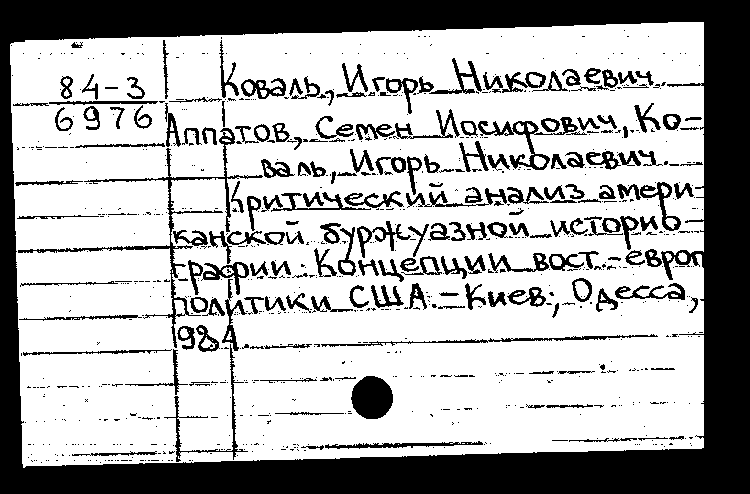 84-3
6976
Коваль, Игорь Николаевич.
Аппатов, Семен Иосифович, Ко-
валь, Игорь Николаевич.
Критический анализ амери-
канской буржуазной историо-
графии: Концепции вост.-европ
политики США. - Киев; Одесса,
1984.